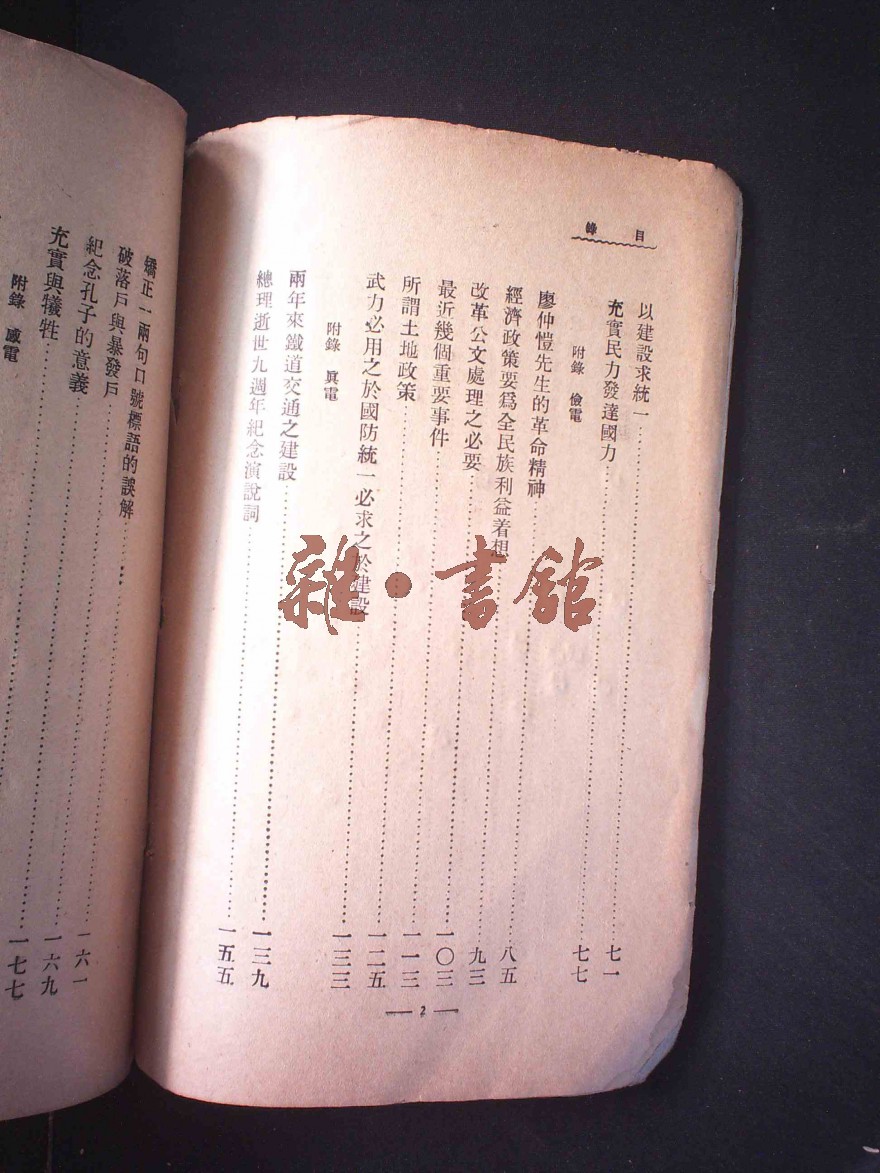 目錄
以建設求統一……七一
充實民力發達國力……七七
附錄 儉電
廖仲愷先生的革命精神……八五
經濟政策要爲全民族利益着想……九三
改革公文處理之必要……一〇三
最近幾個重要事件……一一三
所謂土地政策……一二五
武力必用之於國防統一必求之於建設……一三三
附錄 眞電
兩年來鐵道交通之建設……一三九
總理逝世九週年紀念演說詞……一五五
— 2 —
矯正一兩句口號標語的誤解……一六一
破落戶與暴發戶……一六九
紀念孔子的意義……一七七
充實與犧牲……
附錄 咸電
雜·書館